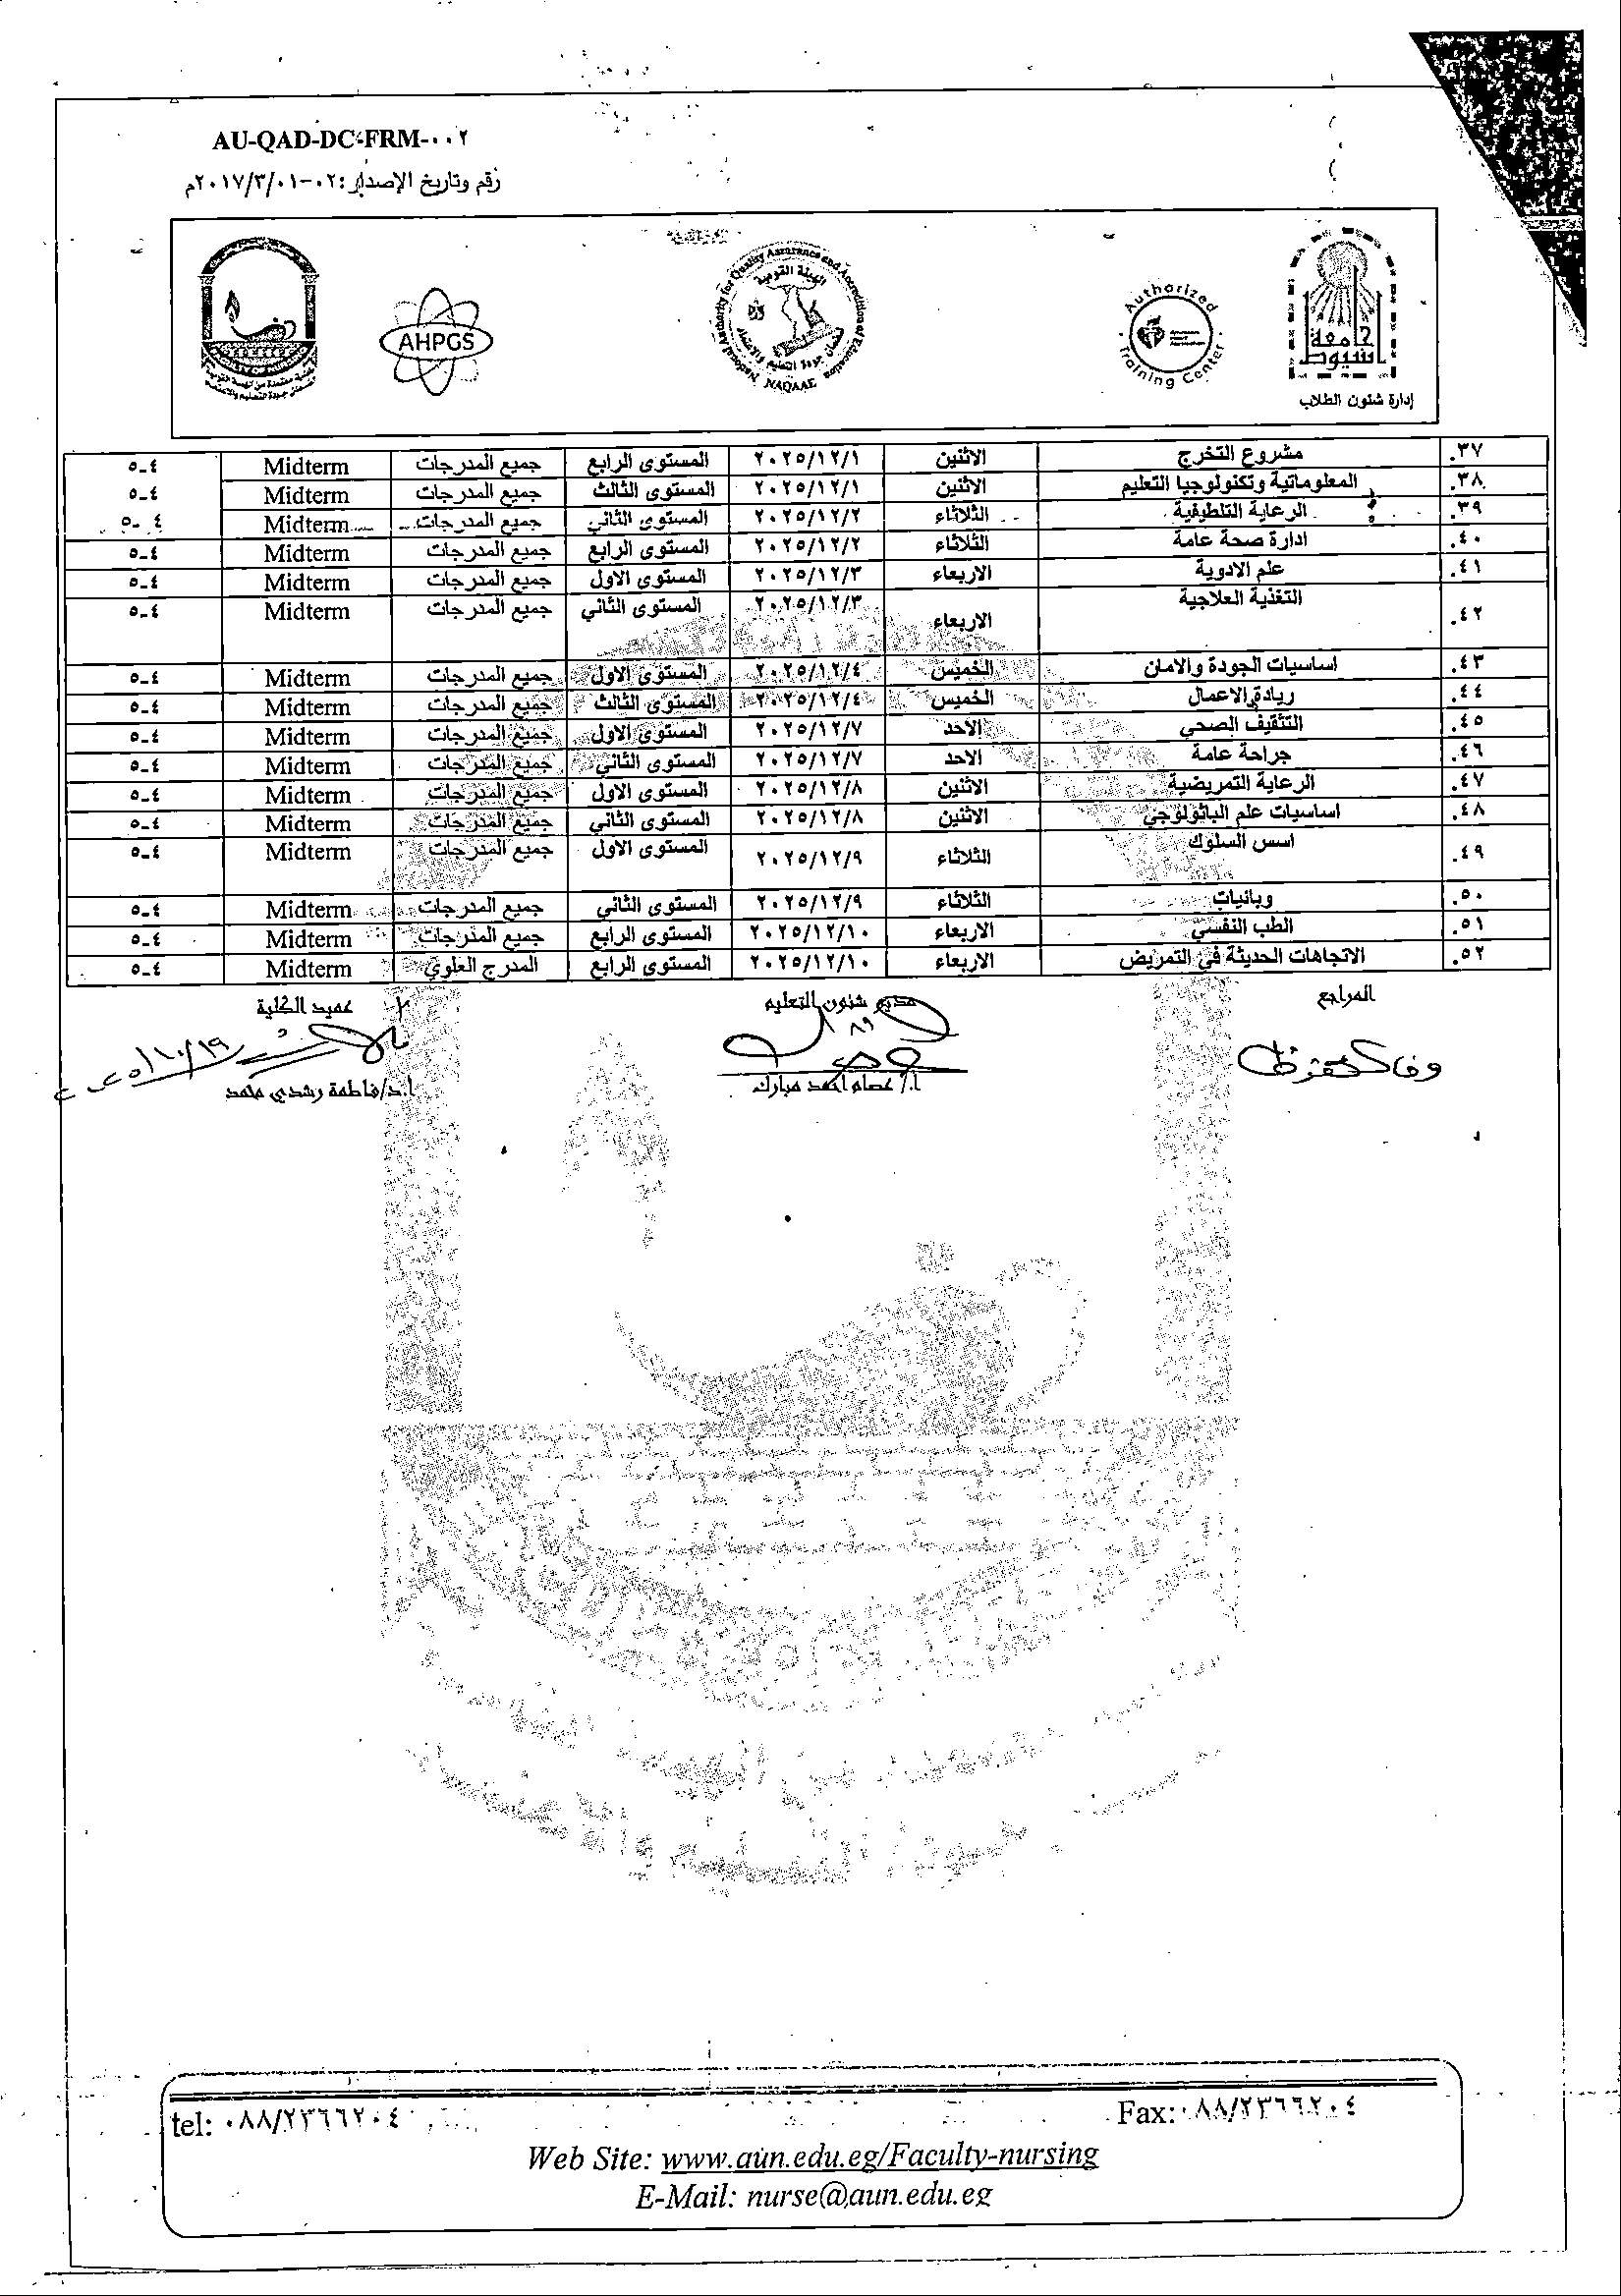 AU-QAD-DC-FRM-٠٠٢
رقم وتاريخ الإصدار: ٠٢-٢٠١٧/٣/٠١م
AHPGS
National Authority for Quality Assurance and Accreditation of Education
الهيئة القومية
لضمان جودة التعليم والاعتماد
NAQAAE
Authorized
Training Center
جامعة
أسيوط
إدارة شئون الطلاب
كلية معتمدة من الهيئة القومية
لضمان جودة التعليم والاعتماد
٣٧. مشروع التخرج الاثنين ٢٠٢٥/١٢/١ المستوى الرابع جميع المدرجات Midterm ٤-٥
٣٨. المعلوماتية وتكنولوجيا التعليم الاثنين ٢٠٢٥/١٢/١ المستوى الثالث جميع المدرجات Midterm ٤-٥
٣٩. الرعاية التلطيفية الثلاثاء ٢٠٢٥/١٢/٢ المستوى الثاني جميع المدرجات Midterm ٤-٥
٤٠. ادارة صحة عامة الثلاثاء ٢٠٢٥/١٢/٢ المستوى الرابع جميع المدرجات Midterm ٤-٥
٤١. علم الادوية الاربعاء ٢٠٢٥/١٢/٣ المستوى الاول جميع المدرجات Midterm ٤-٥
٤٢. التغذية العلاجية الاربعاء ٢٠٢٥/١٢/٣ المستوى الثاني جميع المدرجات Midterm ٤-٥
٤٣. اساسيات الجودة والامان الخميس ٢٠٢٥/١٢/٤ المستوى الاول جميع المدرجات Midterm ٤-٥
٤٤. ريادة الاعمال الخميس ٢٠٢٥/١٢/٤ المستوى الثالث جميع المدرجات Midterm ٤-٥
٤٥. التثقيف الصحي الاحد ٢٠٢٥/١٢/٧ المستوى الاول جميع المدرجات Midterm ٤-٥
٤٦. جراحة عامة الاحد ٢٠٢٥/١٢/٧ المستوى الثاني جميع المدرجات Midterm ٤-٥
٤٧. الرعاية التمريضية الاثنين ٢٠٢٥/١٢/٨ المستوى الاول جميع المدرجات Midterm ٤-٥
٤٨. اساسيات علم الباثولوجي الاثنين ٢٠٢٥/١٢/٨ المستوى الثاني جميع المدرجات Midterm ٤-٥
٤٩. اسس السلوك الثلاثاء ٢٠٢٥/١٢/٩ المستوى الاول جميع المدرجات Midterm ٤-٥
٥٠. وبائيات الثلاثاء ٢٠٢٥/١٢/٩ المستوى الثاني جميع المدرجات Midterm ٤-٥
٥١. الطب النفسي الاربعاء ٢٠٢٥/١٢/١٠ المستوى الرابع جميع المدرجات Midterm ٤-٥
٥٢. الاتجاهات الحديثة في التمريض الاربعاء ٢٠٢٥/١٢/١٠ المستوى الرابع المدرج العلوي Midterm ٤-٥
المراجع مدير شئون التعليم عميد الكلية
أ/ عصام احمد مبارك ا.د/فاطمة رشدي محمد
tel: ٠٨٨/٢٣٦٦٢٠٤ Fax: ٠٨٨/٢٣٦٦٢٠٤
Web Site: www.aun.edu.eg/Faculty-nursing
E-Mail: nurse@aun.edu.eg